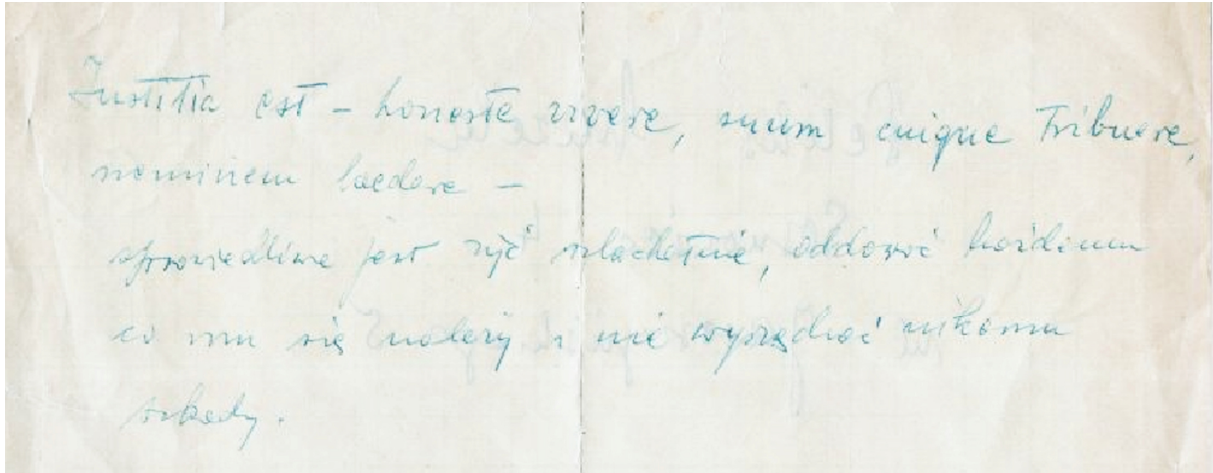 Iustitia est – honeste vivere, suum cuique tribuere,
neminem laedere –
sprawiedliwe jest żyć szlachetnie, oddawać każdemu
co mu się należy i nie wyrządzać nikomu
szkody.